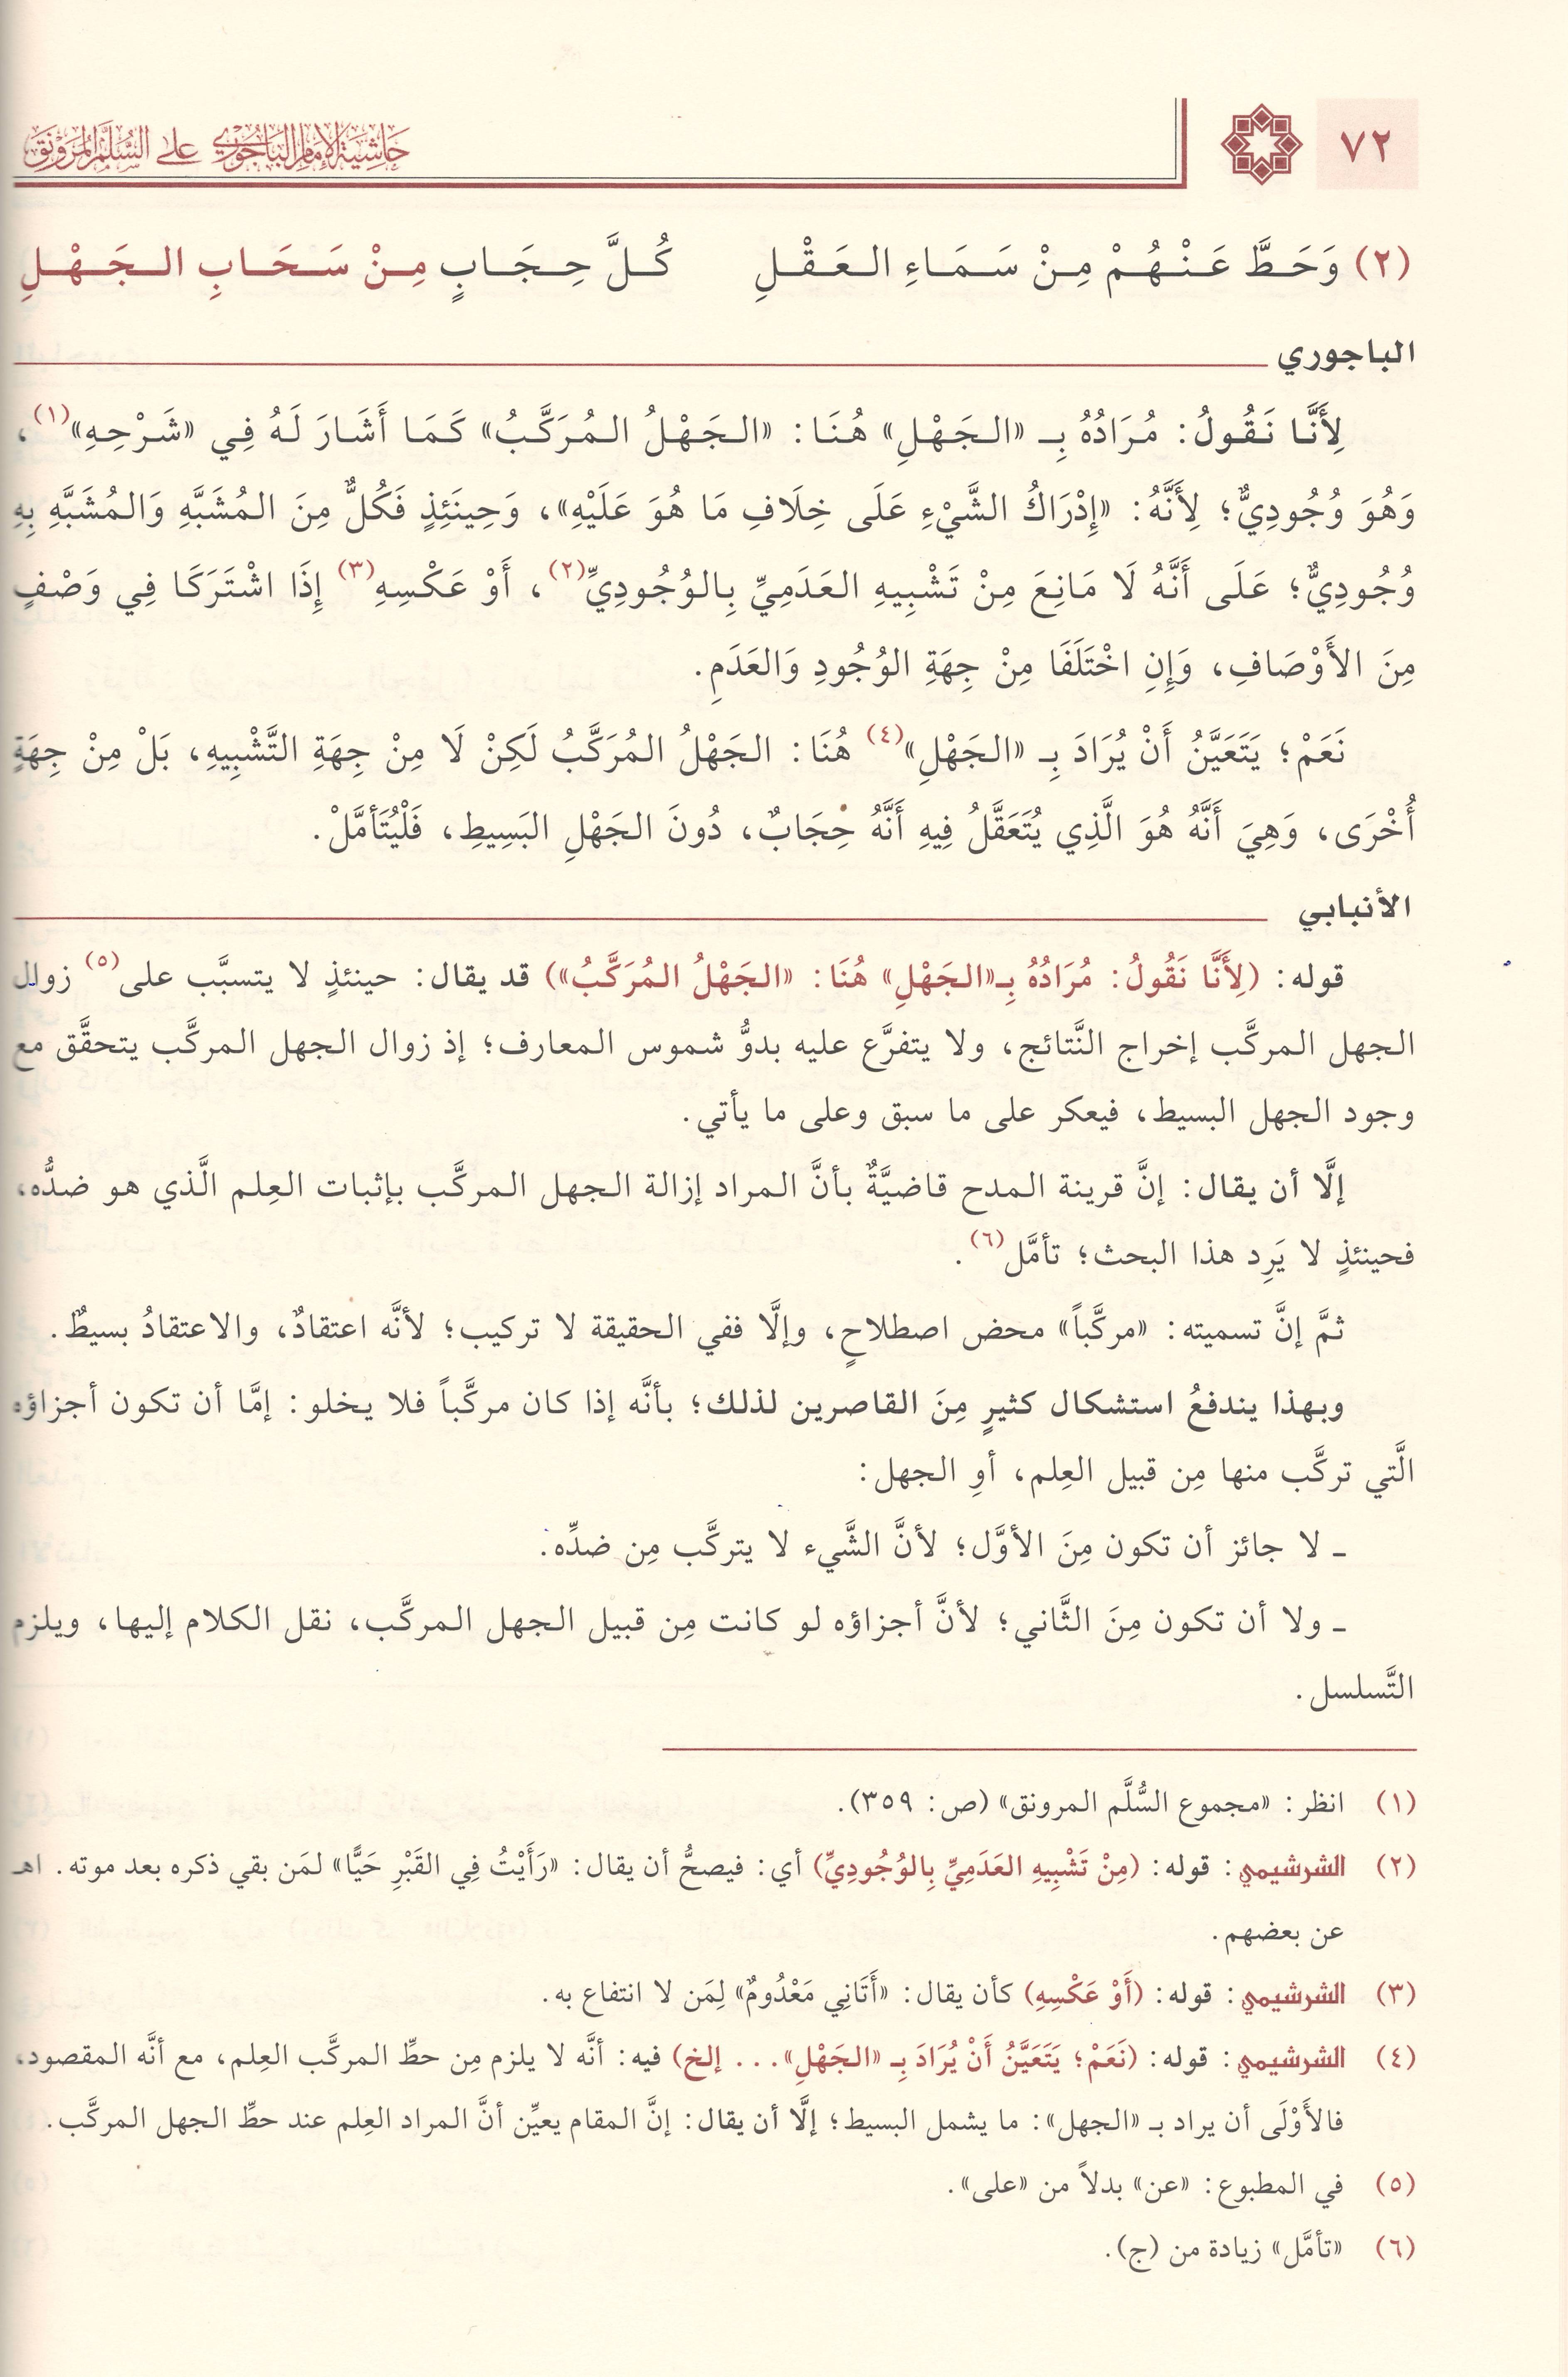 ٧٢
حاشية الإمام الباجوري على السلم المرونق
(٢) وَحَطَّ عَنْهُمْ مِنْ سَمَاءِ العَقْلِ كُلَّ حِجَابٍ مِنْ سَحَابِ الجَهْلِ
الباجوري
لِأَنَّا نَقُولُ: مُرَادُهُ بِـ «الجَهْلِ» هُنَا: «الجَهْلُ المُرَكَّبُ» كَمَا أَشَارَ لَهُ فِي «شَرْحِهِ»(١)،
وَهُوَ وُجُودِيٌّ؛ لِأَنَّهُ: «إِدْرَاكُ الشَّيْءِ عَلَى خِلَافِ مَا هُوَ عَلَيْهِ»، وَحِينَئِذٍ فَكُلٌّ مِنَ المُشَبَّهِ وَالمُشَبَّهِ بِهِ
وُجُودِيٌّ؛ عَلَى أَنَّهُ لَا مَانِعَ مِنْ تَشْبِيهِ العَدَمِيِّ بِالوُجُودِيِّ(٢)، أَوْ عَكْسِهِ(٣) إِذَا اشْتَرَكَا فِي وَصْفٍ
مِنَ الأَوْصَافِ، وَإِنِ اخْتَلَفَا مِنْ جِهَةِ الوُجُودِ وَالعَدَمِ.
نَعَمْ؛ يَتَعَيَّنُ أَنْ يُرَادَ بِـ «الجَهْلِ»(٤) هُنَا: الجَهْلُ المُرَكَّبُ لَكِنْ لَا مِنْ جِهَةِ التَّشْبِيهِ، بَلْ مِنْ جِهَةٍ
أُخْرَى، وَهِيَ أَنَّهُ هُوَ الَّذِي يُتَعَقَّلُ فِيهِ أَنَّهُ حِجَابٌ، دُونَ الجَهْلِ البَسِيطِ، فَلْيُتَأمَّلْ.
الأنبابي
قوله: (لِأَنَّا نَقُولُ: مُرَادُهُ بِـ«الجَهْلِ» هُنَا: «الجَهْلُ المُرَكَّبُ») قد يقال: حينئذٍ لا يتسبَّب على(٥) زوال
الجهل المركَّب إخراج النَّتائج، ولا يتفرَّع عليه بدوُّ شموس المعارف؛ إذ زوال الجهل المركَّب يتحقَّق مع
وجود الجهل البسيط، فيعكر على ما سبق وعلى ما يأتي.
إلَّا أن يقال: إنَّ قرينة المدح قاضيَّةٌ بأنَّ المراد إزالة الجهل المركَّب بإثبات العِلم الَّذي هو ضدُّه،
فحينئذٍ لا يَرِد هذا البحث؛ تأمَّل(٦).
ثمَّ إنَّ تسميته: «مركَّباً» محض اصطلاحٍ، وإلَّا ففي الحقيقة لا تركيب؛ لأنَّه اعتقادٌ، والاعتقادُ بسيطٌ.
وبهذا يندفعُ استشكال كثيرٍ مِنَ القاصرين لذلك؛ بأنَّه إذا كان مركَّباً فلا يخلو: إمَّا أن تكون أجزاؤه
الَّتي تركَّب منها مِن قبيل العِلم، أوِ الجهل:
ـ لا جائز أن تكون مِنَ الأوَّل؛ لأنَّ الشَّيء لا يتركَّب مِن ضدِّه.
ـ ولا أن تكون مِنَ الثَّاني؛ لأنَّ أجزاؤه لو كانت مِن قبيل الجهل المركَّب، نقل الكلام إليها، ويلزم
التَّسلسل.
(١) انظر: «مجموع السُّلَّم المرونق» (ص: ٣٥٩).
(٢) الشرشيمي: قوله: (مِنْ تَشْبِيهِ العَدَمِيِّ بِالوُجُودِيِّ) أي: فيصحُّ أن يقال: «رَأَيْتُ فِي القَبْرِ حَيًّا» لمَن بقي ذكره بعد موته. اهـ
عن بعضهم.
(٣) الشرشيمي: قوله: (أَوْ عَكْسِهِ) كأن يقال: «أَتَانِي مَعْدُومٌ» لِمَن لا انتفاع به.
(٤) الشرشيمي: قوله: (نَعَمْ؛ يَتَعَيَّنُ أَنْ يُرَادَ بِـ «الجَهْلِ»... إلخ) فيه: أنَّه لا يلزم مِن حطِّ المركَّب العِلم، مع أنَّه المقصود،
فالأَوْلَى أن يراد بـ «الجهل»: ما يشمل البسيط؛ إلَّا أن يقال: إنَّ المقام يعيِّن أنَّ المراد العِلم عند حطِّ الجهل المركَّب.
(٥) في المطبوع: «عن» بدلاً من «على».
(٦) «تأمَّل» زيادة من (ج).